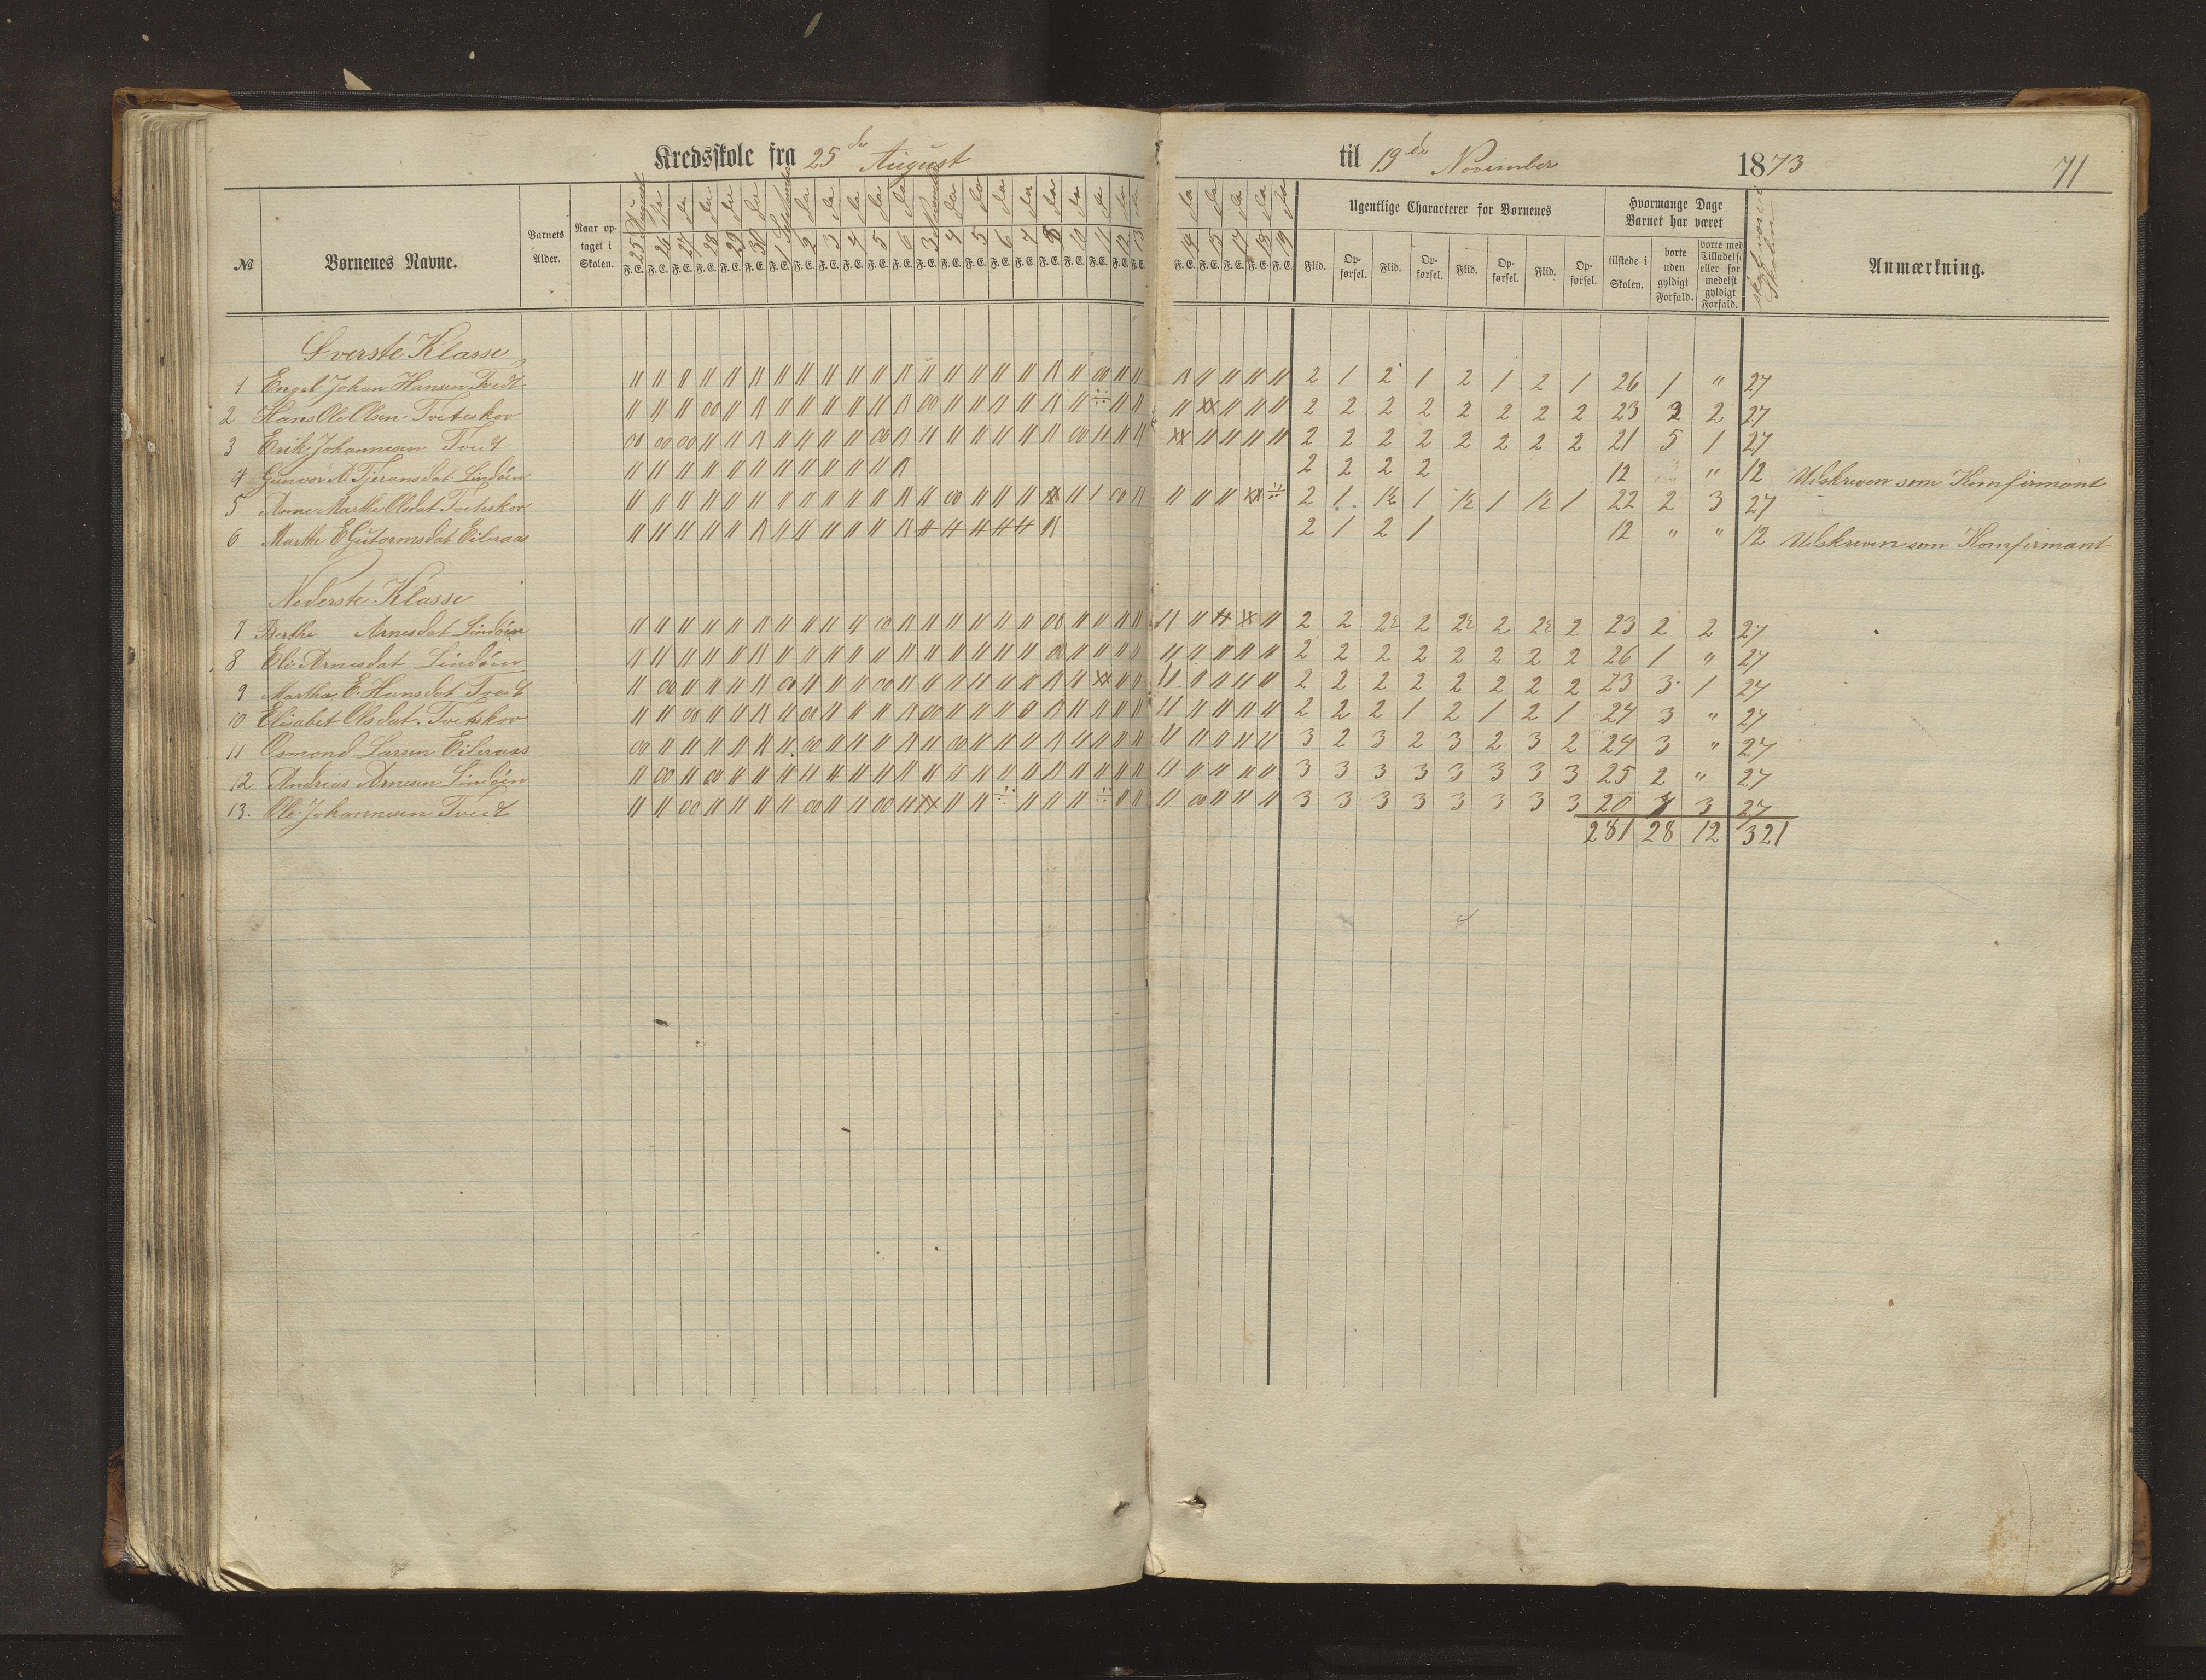 Kredsskole fra 25de August til 19de November 1873 71
№ Børnenes Navne. Barnets Alder. Naar optaget i Skolen. 25 August 26 27 28 29 30 1 September 2 3 4 5 6 3 November 4 5 6 7 8 10 11 12 13 14 15 17 18 19
Ugentlige Characterer for Børnenes
Flid. Opførsel. Flid. Opførsel. Flid. Opførsel. Flid. Opførsel.
Hvormange Dage Barnet har været
tilstede i Skolen. borte uden gyldigt Forfald. borte med Tilladelse eller formedelst gyldigt Forfald.
Anmærkning.
Øverste Klasse
1 Engel Johan Hansen Tvedt 2 1 2 1 2 1 2 1 26 1 " 27
2 Hans Ole Olsen Tveteskov 2 2 2 2 2 2 2 2 23 2 2 27
3 Erik Johannesen Tvedt 2 2 2 2 2 2 2 2 21 5 1 27
4 Gunvor A Tjeransdat Lindöen 2 2 2 2 12 " 12 Udskreven som Komfirmant
5 Anne Marthe Olsdat Tveteskov 2 1 1½ 1 1½ 1 1½ 1 22 2 3 27
6 Marthe E Gutormsdat Eileraas 2 1 2 1 12 " " 12 Udskreven som Komfirmant
Nederste Klasse
7 Berthe Arnesdat Lindöen 2 2 2½ 2 2½ 2 2½ 2 23 2 2 27
8 Eli Arnesdat Lindöen 2 2 2 2 2 2 2 2 26 1 " 27
9 Martha E. Hansdat Tvedt 2 2 2 2 2 2 2 2 23 3 1 27
10 Elisabet Olsdat. Tvetskov 2 2 2 1 2 1 2 1 24 3 " 27
11 Osmond Larsen Eileraas 3 2 3 2 3 2 3 2 24 3 " 27
12 Andrias Arnesen Lindöen 3 3 3 3 3 3 3 3 25 2 " 27
13. Ole Johannesen Tvedt 3 3 3 3 3 3 3 3 20 4 3 27
281 28 12 321